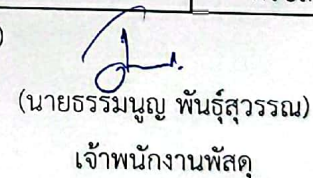 (นายธรรมนูญ พันธุ์สุวรรณ)
เจ้าพนักงานพัสดุ